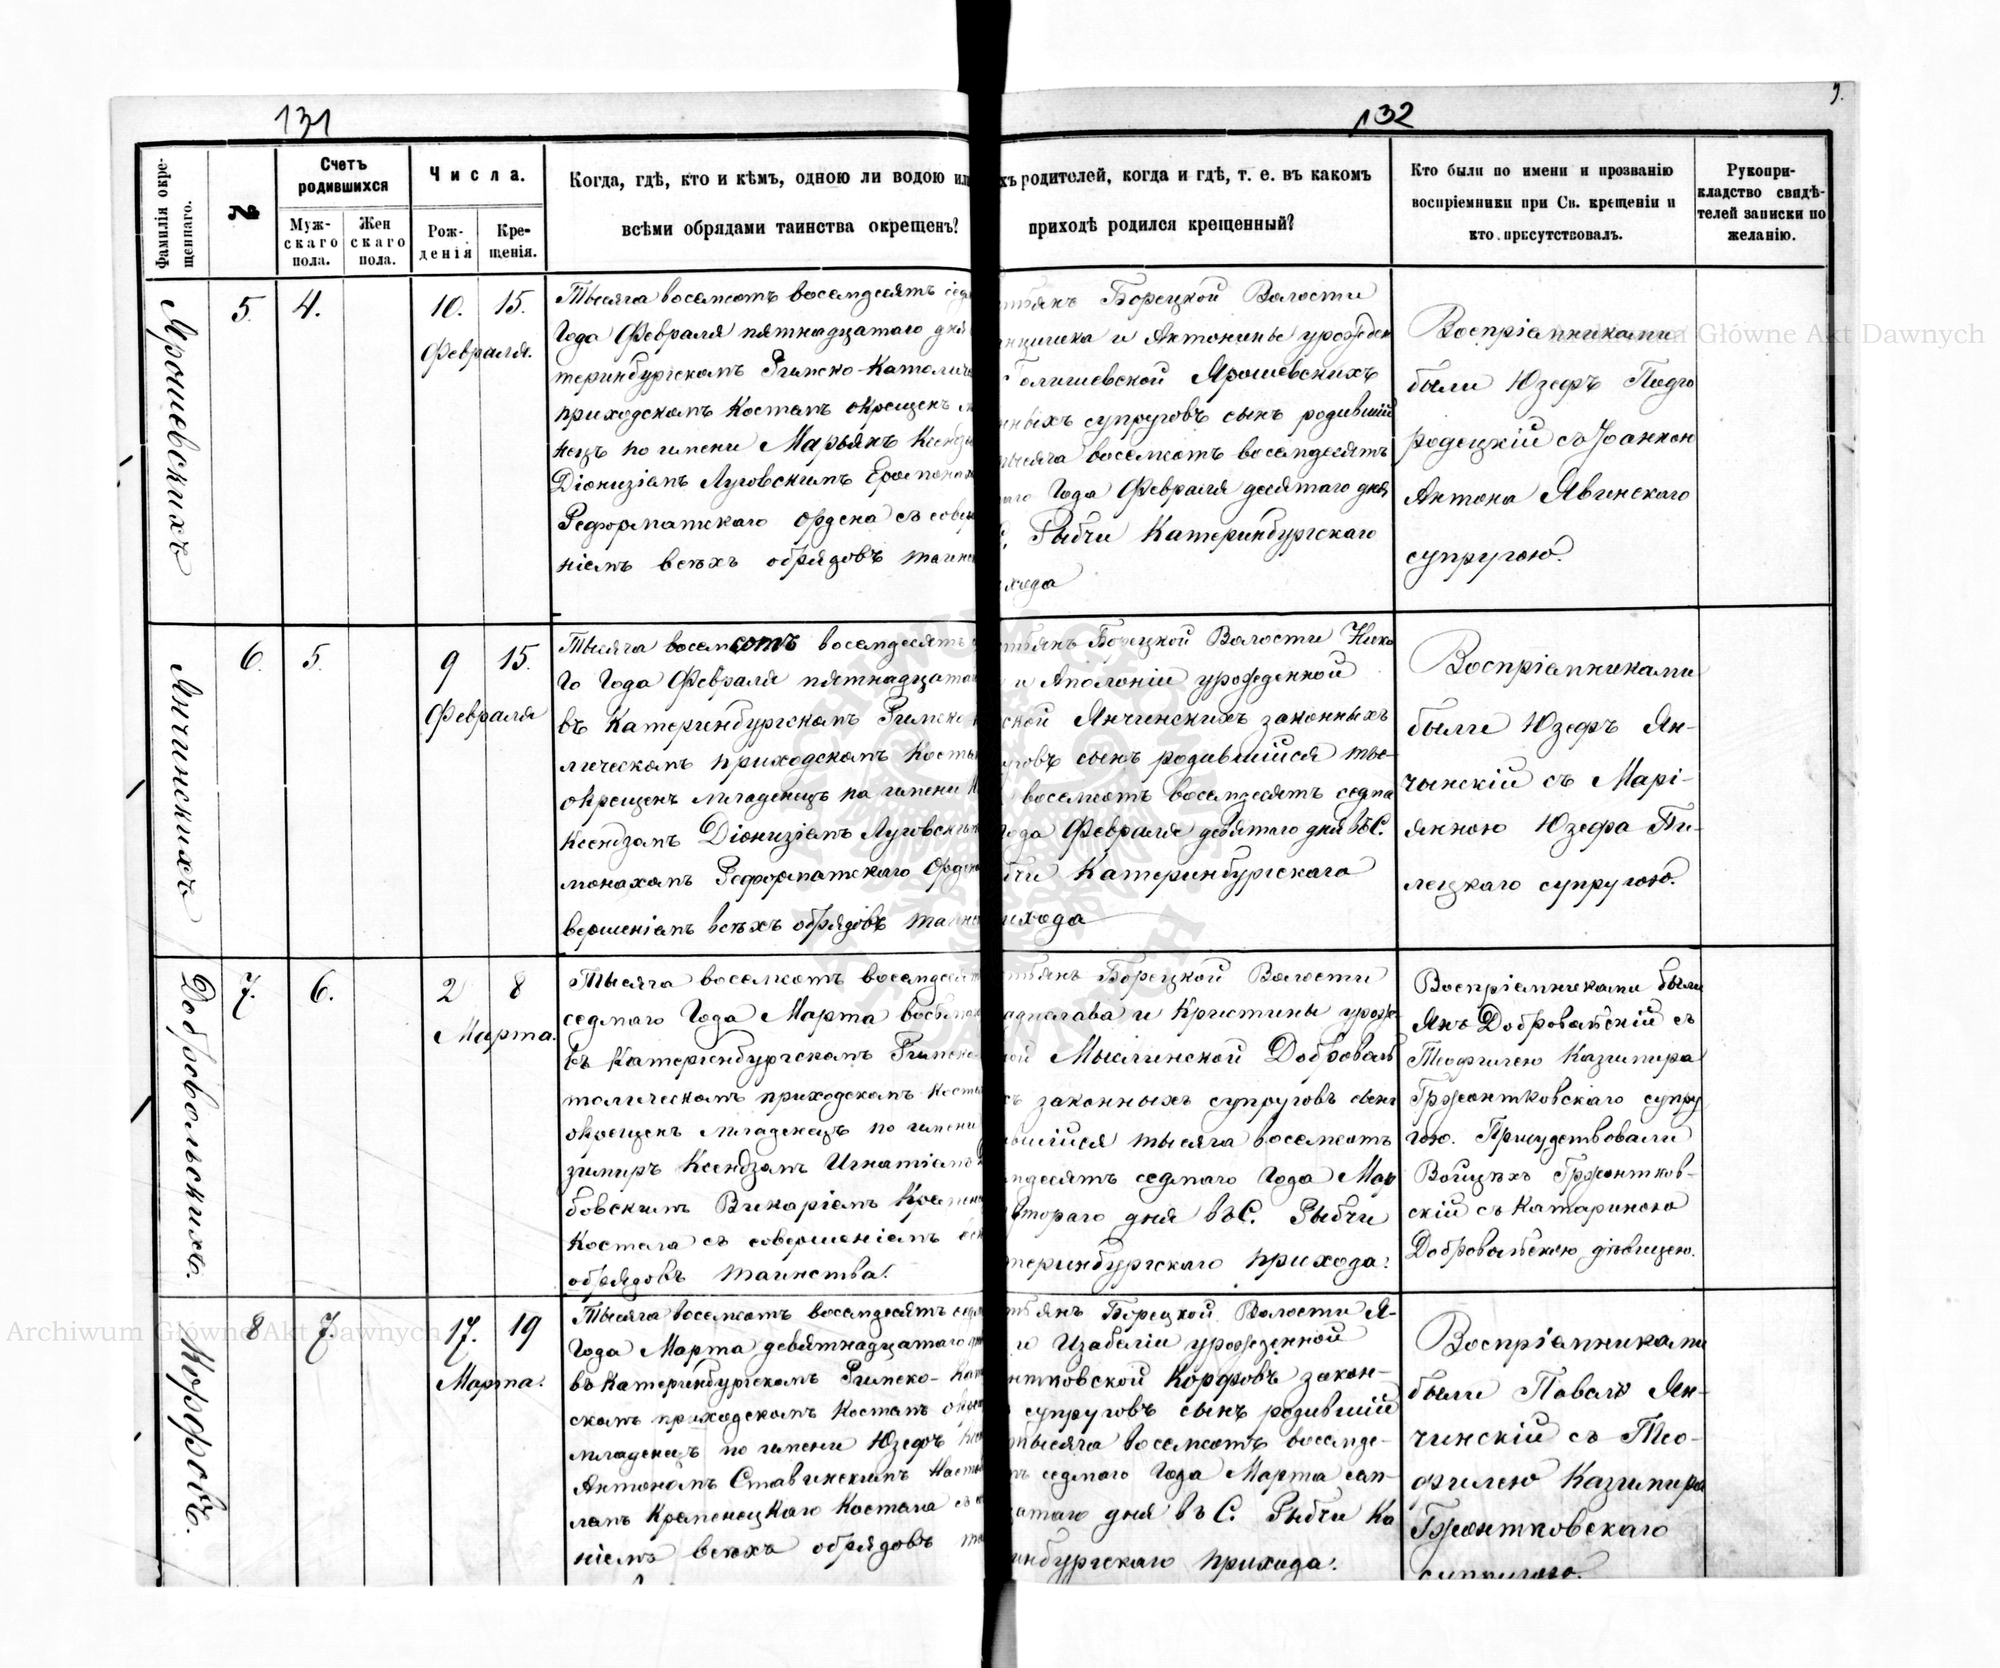 131
132
Фамилія окре-
щеннаго.
№
Счетъ
родившихся
Муж-
скаго
пола.
Жен
скаго
пола.
Числа.
Рож-
денія
Кре-
щенія.
Когда, гдѣ, кто и кѣмъ, одною ли водою ил
всѣми обрядами таинства окрещенъ?
хъ родителей, когда и гдѣ, т. е. въ каком
приходѣ родился крещенный?
Кто были по имени и прозванію
воспріемники при Св. крещеніи и
кто присутствовалъ.
Рукопри-
кладство свидѣ-
телей записки по
желанію.
Ярошевскихъ
5.
4.
10. 15.
Февраля.
Тысяча восемсотъ восемдесятъ сед
Года Февраля пятнадцатаго дня
теринбургскомъ Римско-Католиче
приходскомъ Костелѣ окрещенъ
нецъ по имени Марьянъ Ксендз
Діонизіемъ Луговскимъ Еромонах
Реформатскаго ордена съ совер
ніемъ всѣхъ обрядовъ таин
Борецкой Волости
и Антонины урожден
Голишевской Ярошевскихъ
нныхъ супруговъ сынъ родившій
тысяча восемсотъ восемдесятъ
Года Февраля десятаго дня
С. Рыбчи Катеринбургскаго
хода
Воспріемниками
были Юзефъ Подго
родецкій съ Іоанною
Антона Явинскаго
супругою.
Янчинскихъ
6.
5.
9 15.
Февраля
Тысяча восемсотъ восемдесятъ
го Года Февраля пятнадцата
въ Катеринбургскомъ Римско
лическомъ приходскомъ Косте
окрещенъ младенецъ по имени
Ксендзомъ Діонизіемъ Луговски
монахомъ Реформатскаго Орден
вершеніемъ всѣхъ обрядовъ таин
Борецкой Волости Нико
и Аполоніи урожденной
ской Янчинскихъ законныхъ
уговъ сынъ родившійся тыс-
восемсотъ восемдесятъ седма
Года Февраля девятаго дня въ С.
бчи Катеринбургскаго
ихода
Воспріемниками
были Юзефъ Ян-
чинскій съ Марі-
янною Юзефа Пи-
лецкаго супругою.
Добровольскихъ.
7.
6.
2 8
Марта.
Тысяча восемсотъ восемдесят
седмаго Года Марта восьма
въ Катеринбургскомъ Римско
толическомъ приходскомъ Косте
окрещенъ младенецъ по имени
зимиръ Ксендзомъ Игнатіемъ
бовскимъ Викаріемъ Кремен
Костела съ совершеніемъ всѣ
обрядовъ таинства.
Борецкой Волости
адислава и Кристины урож
ой Мыслинской Доброволь
ъ законныхъ супруговъ сынъ
вшійся тысяча восемсотъ
мдесятъ седмаго Года Мар
втораго дня въ С. Рыбчи
теринбургскаго прихода.
Воспріемниками были
Янъ Добровольскій съ
Теофилею Казимира
Гржонтковскаго супру
гою. Присудствовали
Войцѣхъ Гржонтков-
скій съ Катариною
Добровольскою дѣвицею.
Корфовъ.
8
7.
17. 19
Марта.
Тысяча восемсотъ восемдесятъ седм
Года Марта девятнадцатаго
въ Катеринбургскомъ Римско-Кат
скомъ приходскомъ Костелѣ окре
младенецъ по имени Юзефъ
Антономъ Ставинскимъ Насто
лемъ Кременецкаго Костела съ
ніемъ всѣхъ обрядовъ та
Борецкой Волости Я-
и Изабеліи урожденной
нтковской Корфовъ закон-
супруговъ сынъ родившій
тысяча восемсотъ восемде-
ъ седмаго Года Марта сем-
цатаго дня въ С. Рыбчи Ка
инбургскаго прихода.
Воспріемниками
были Павелъ Ян-
чинскій съ Тео-
филею Казимира
Гржонтковскаго
супругою.
Archiwum Główne Akt Dawnych
Archiwum Główne Akt Dawnych